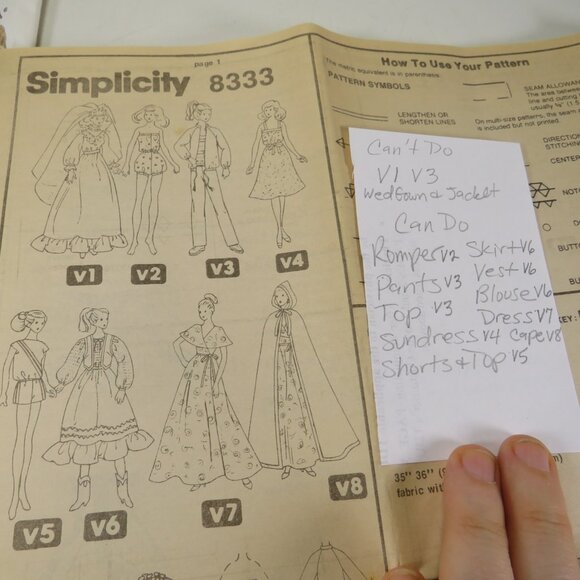 page 1
Simplicity 8333
V1 V2 V3 V4
V5 V6 V7 V8
How To Use Your Pattern
The metric equivalent is in parenthesis.
PATTERN SYMBOLS
LENGTHEN OR
SHORTEN LINES
SEAM ALLOWAN
The area between
line and cutting
usually
On multi-size patterns, the seam
is included but not printed.
DIRECTION
STITCHIN
CENTER
NOT
DO
BUTT
BU
KEY:
Can't Do
V1 V3
Wed Gown & Jacket
Can Do
Romper V2 Skirt V6
Pants V3 Vest V6
Top V3 Blouse V6
Dress V7
Sundress V4 Cape V8
Shorts & Top V5
35" 36"
fabric wit